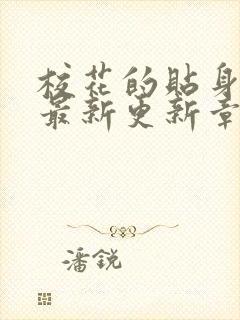 校花的貼身
最新更新章
潘銳